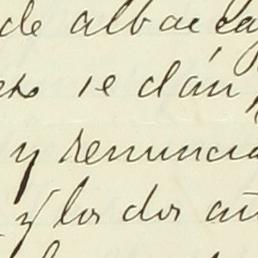 de albacea
se dán
y renuncia
y los dos añ